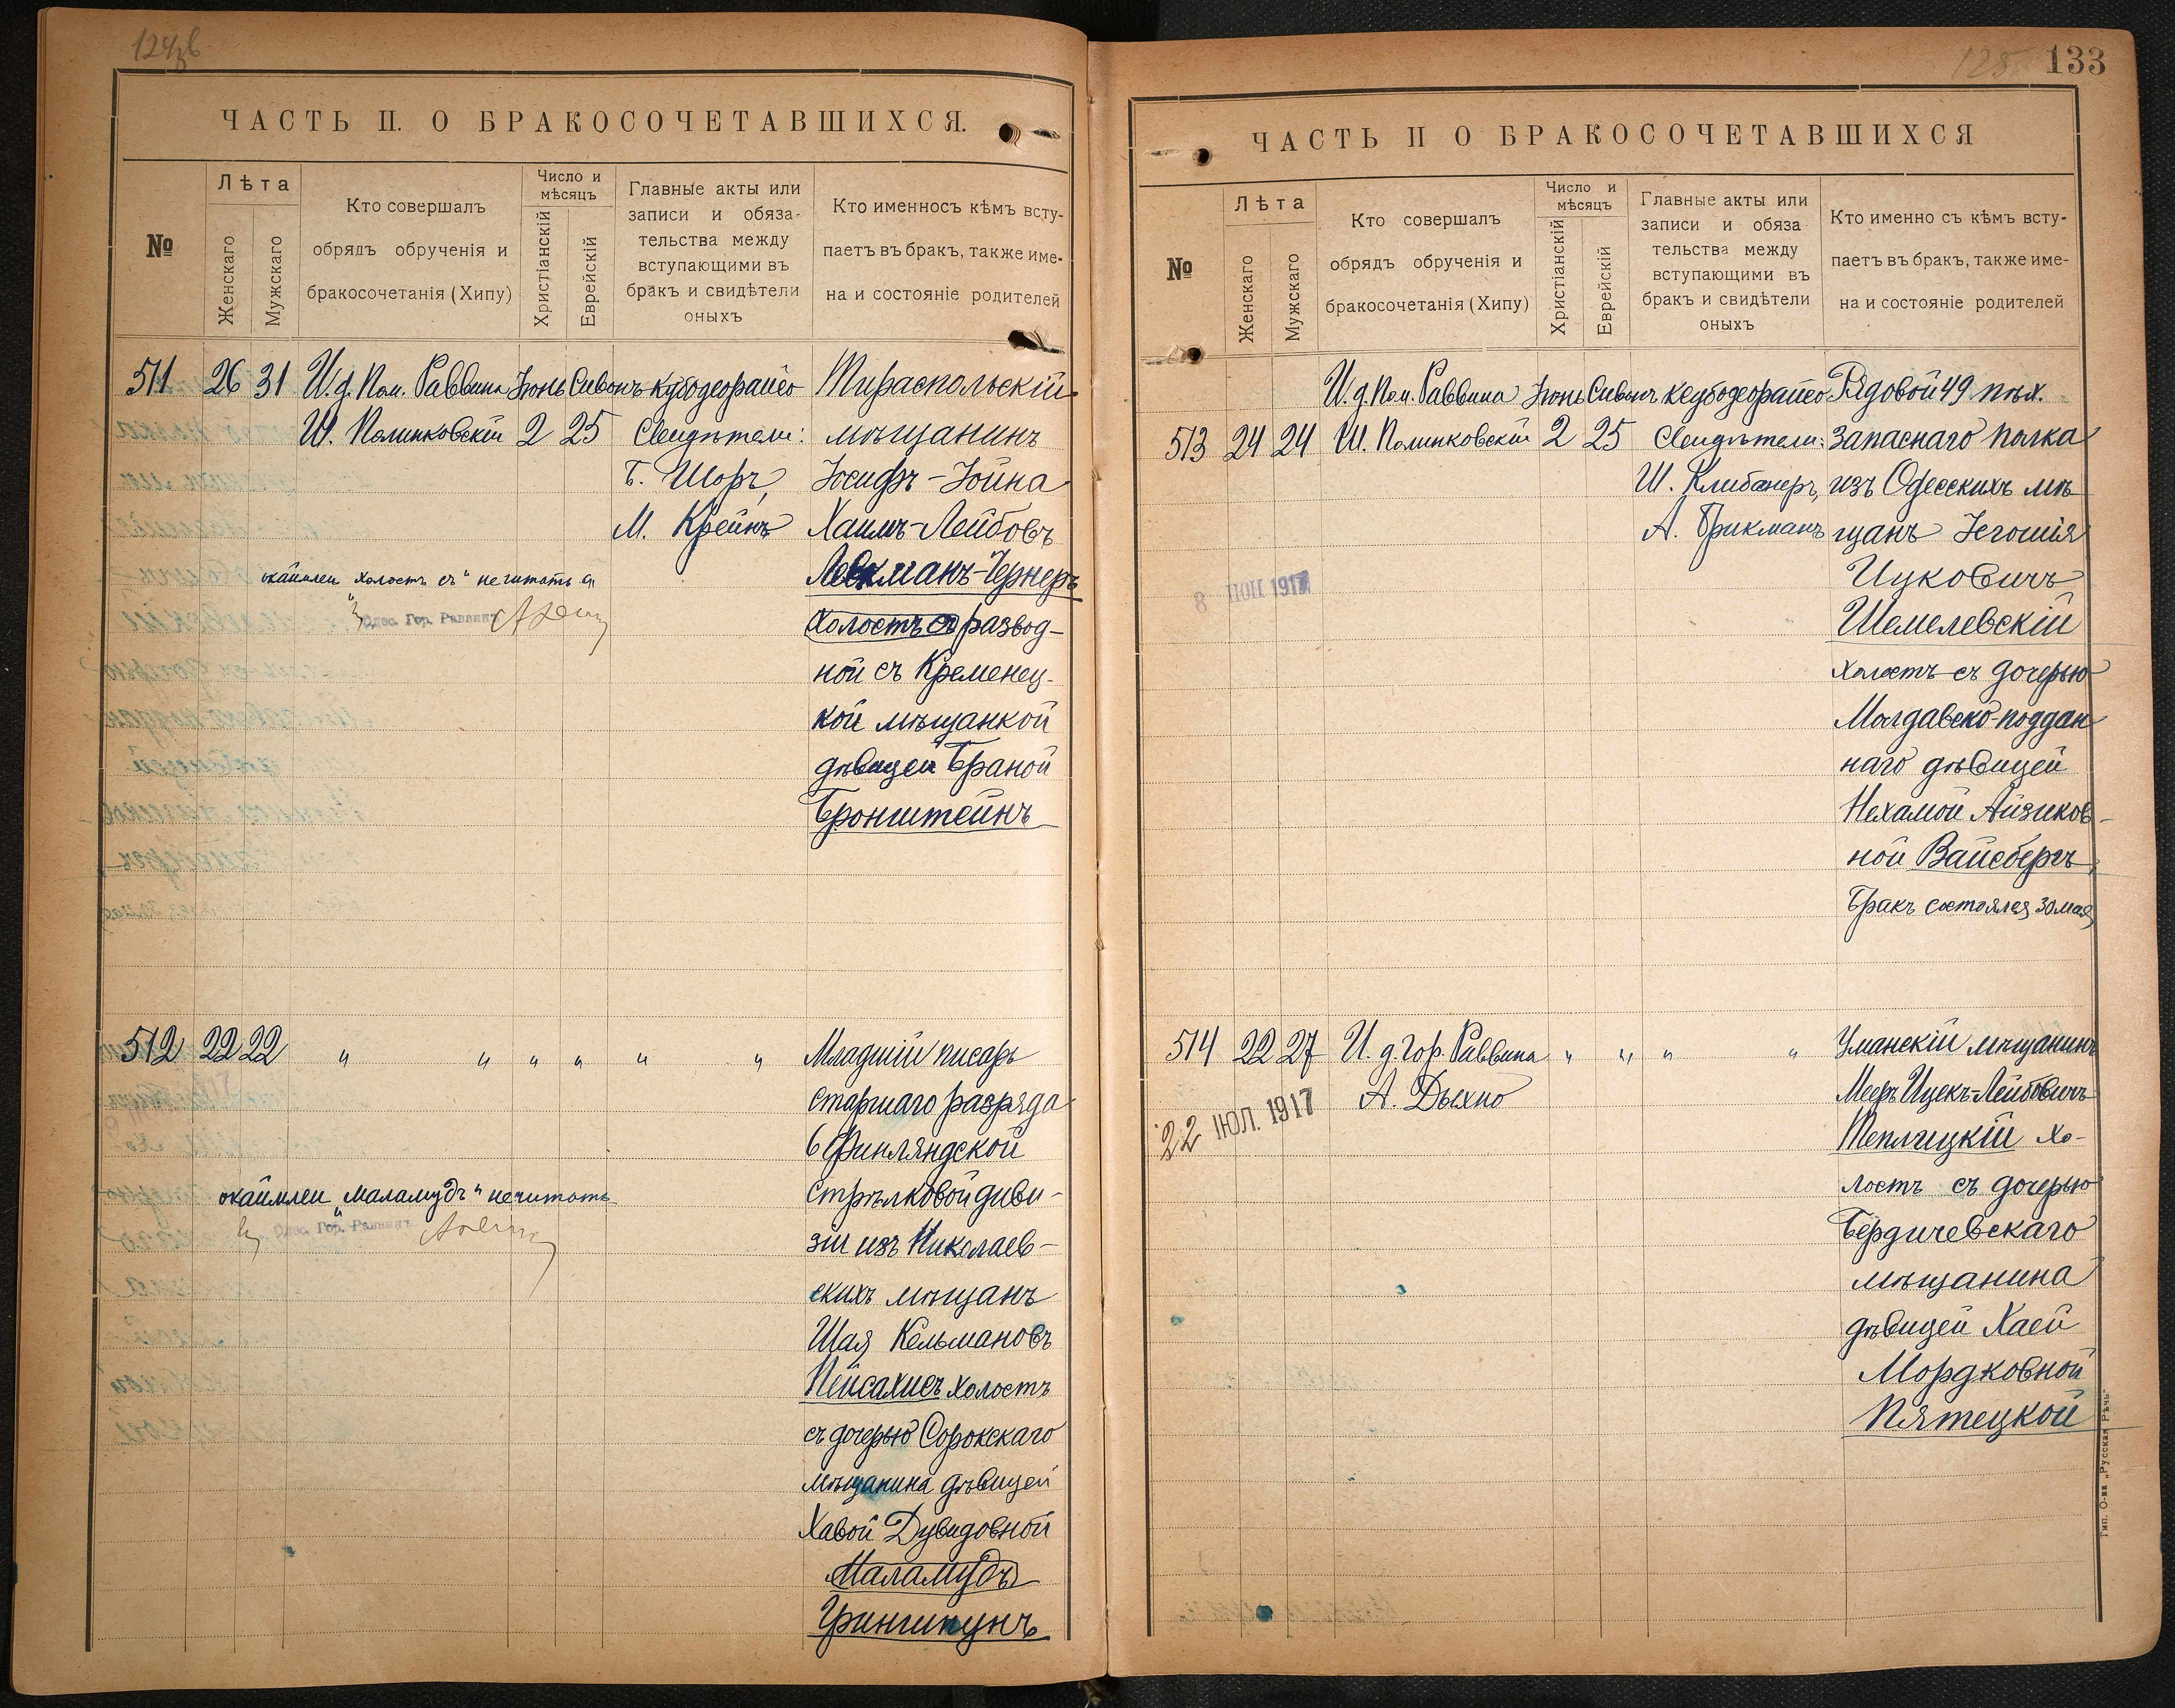 124 об
ЧАСТЬ II. О БРАКОСОЧЕТАВШИХСЯ.
№
Лѣта
Женскаго
Мужскаго
Кто совершалъ
обрядъ обрученія и
бракосочетанія (Хипу)
Число и
мѣсяцъ
Христіанскій
Еврейскій
Главные акты или
записи и обяза-
тельства между
вступающими въ
бракъ и свидѣтели
оныхъ
Кто именносъ кѣмъ всту-
паетъ въ бракъ, также име-
на и состояніе родителей
511 26 31 И. д. Пом. Раввина Іюнь Сивонъ кубодеорайсо Тираспольскій
Ш. Полинковскій 2 25 Свидѣтели: мѣщанинъ
Б. Шоръ, Іосифъ-Іойна
М. Крейнъ Хаимъ-Лейбовъ
окаймлен "холостъ съ" не читать
-Чернеръ
Одес. Гор. Раввинъ
холостъ съ развод-
ной съ Кременец-
кой мѣщанкой
дѣвицей Браной
Бронштейнъ
512 22 22 " " " " " " Младшій писарь
старшаго разряда
6 Финляндской
стрѣлковой диви-
окаймлен "Маламудъ" не читать
Одес. Гор. Раввинъ
зіи изъ Николаев-
скихъ мѣщанъ
Шая Кельмановъ
Пейсахисъ холостъ
съ дочерью Сорокскаго
мѣщанина дѣвицей
Хавой Дувидовной
Маламудъ
Грингипунъ
125 133
ЧАСТЬ II О БРАКОСОЧЕТАВШИХСЯ
№
Лѣта
Женскаго
Мужскаго
Кто совершалъ
обрядъ обрученія и
бракосочетанія (Хипу)
Число и
мѣсяцъ
Христіанскій
Еврейскій
Главные акты или
записи и обяза
тельства между
вступающими въ
бракъ и свидѣтели
оныхъ
Кто именно съ кѣмъ всту-
паетъ въ бракъ, также име-
на и состояніе родителей
И. д. Пом. Раввина Іюнь Сивонъ кеубодеорайсо Рядовой 49 пѣх.
513 24 24 Ш. Полинковскій 2 25 Свидѣтели: запаснаго полка
Ш. Клибанеръ, изъ Одесскихъ мѣ
А. Брикманъ щанъ Іегошія
8 ІЮН 1917
Ицковичъ
Шемелевскій
холостъ съ дочерью
Молдавско-поддан
наго дѣвицей
Нехамой Айзиков-
ной Вайсбергъ,
Бракъ состоялся 30 мая
514 22 27 И. д. Гор. Раввина " " " " Уманскій мѣщанинъ
22 ІЮЛ. 1917 А. Дыхно Мееръ Ицекъ-Лейбовичъ
Теплицкій хо-
лостъ съ дочерью
Бердичевскаго
мѣщанина
дѣвицей Хаей
Мордковной
Пятецкой
Тип. О-ва „Русская Рѣчь“